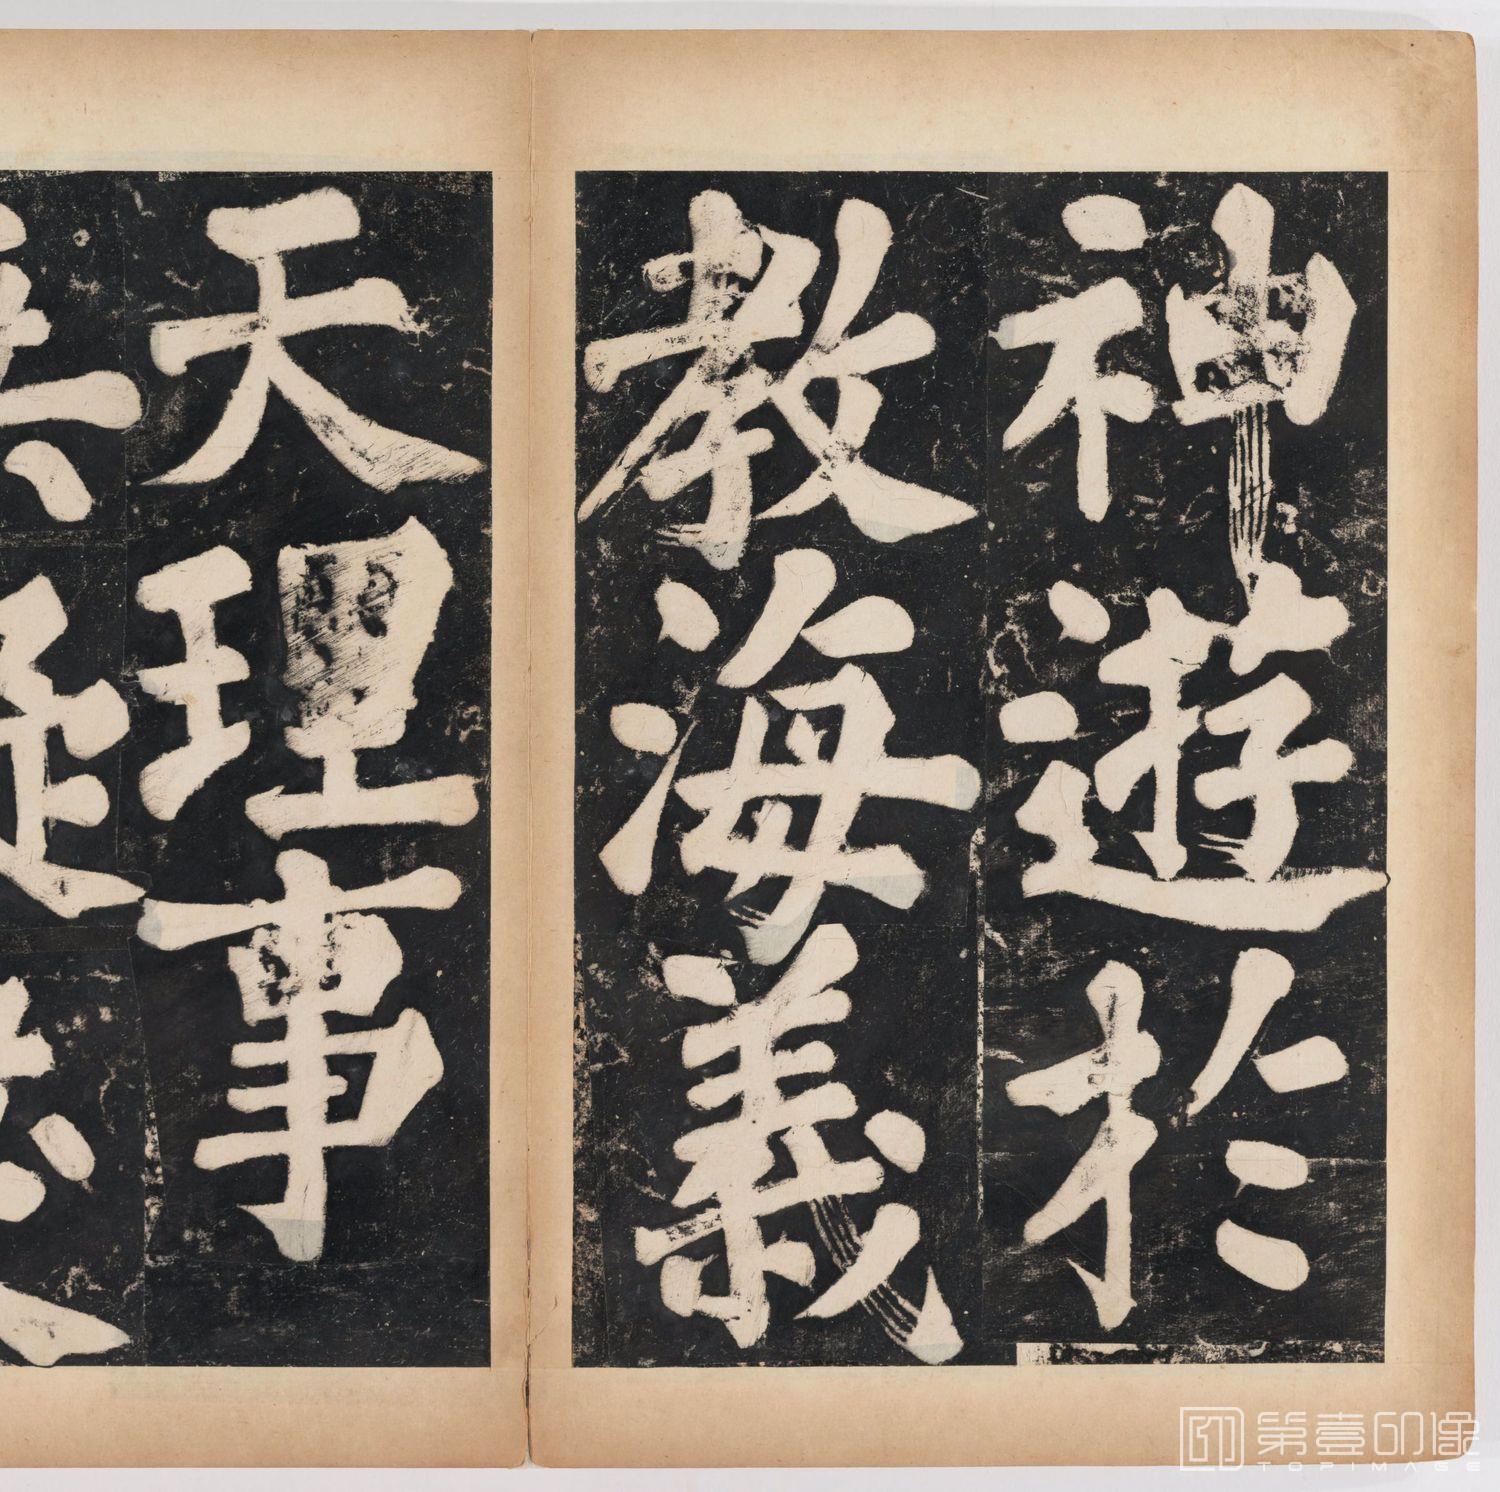 神遊於
教海義
天理事
第壹印像
TOPIMAGE